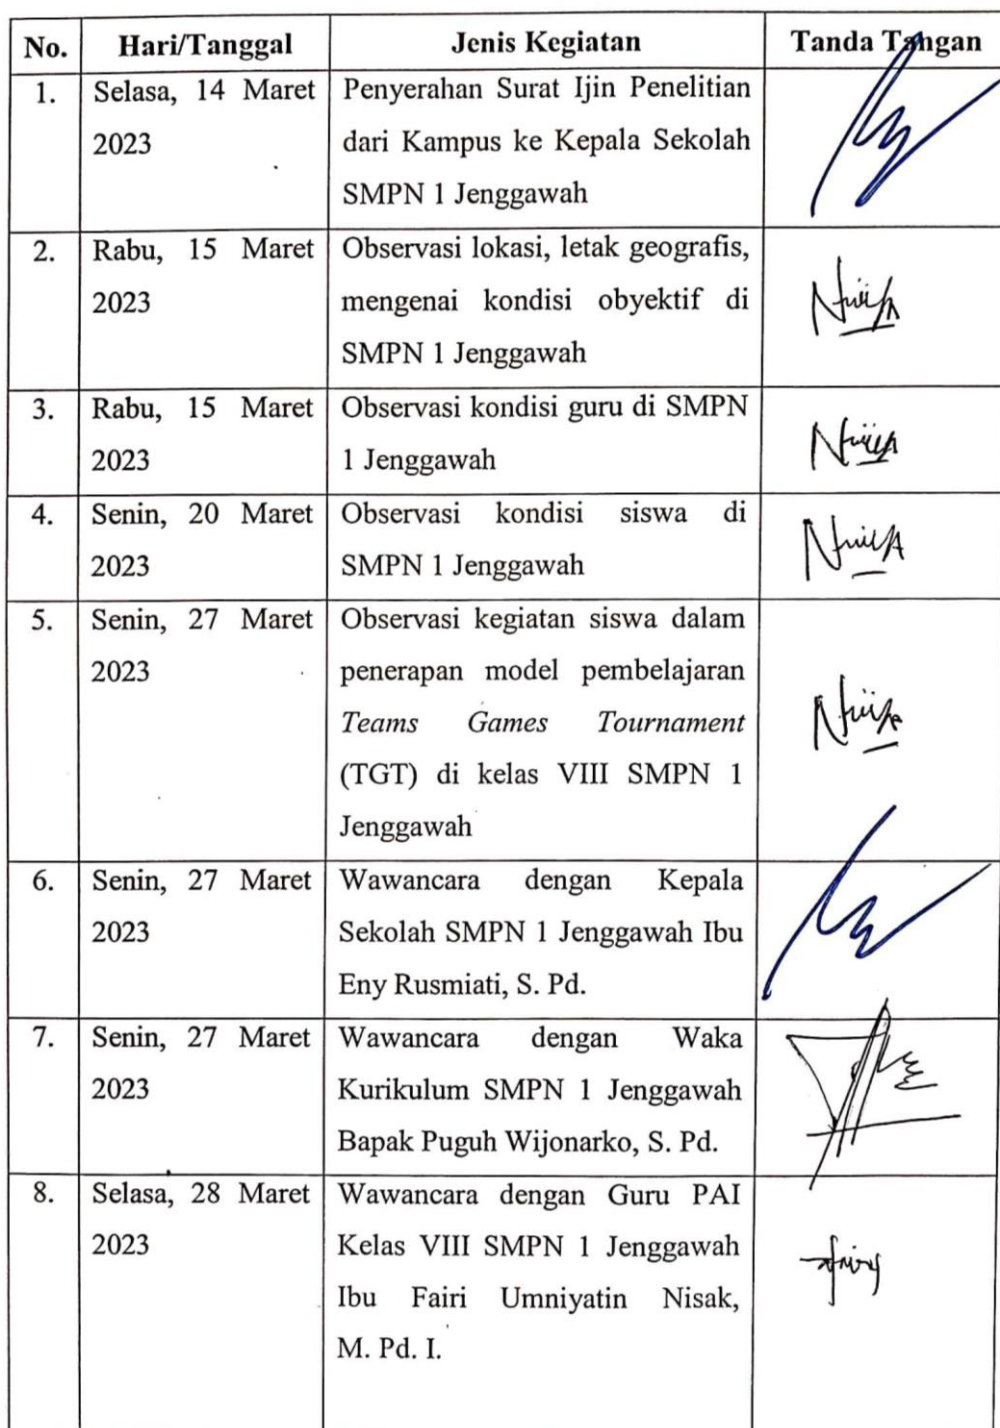 No. Hari/Tanggal Jenis Kegiatan Tanda Tangan
1. Selasa, 14 Maret Penyerahan Surat Ijin Penelitian
2023 dari Kampus ke Kepala Sekolah
SMPN 1 Jenggawah
2. Rabu, 15 Maret Observasi lokasi, letak geografis,
2023 mengenai kondisi obyektif di
SMPN 1 Jenggawah
3. Rabu, 15 Maret Observasi kondisi guru di SMPN
2023 1 Jenggawah
4. Senin, 20 Maret Observasi kondisi siswa di
2023 SMPN 1 Jenggawah
5. Senin, 27 Maret Observasi kegiatan siswa dalam
2023 penerapan model pembelajaran
Teams Games Tournament
(TGT) di kelas VIII SMPN 1
Jenggawah
6. Senin, 27 Maret Wawancara dengan Kepala
2023 Sekolah SMPN 1 Jenggawah Ibu
Eny Rusmiati, S. Pd.
7. Senin, 27 Maret Wawancara dengan Waka
2023 Kurikulum SMPN 1 Jenggawah
Bapak Puguh Wijonarko, S. Pd.
8. Selasa, 28 Maret Wawancara dengan Guru PAI
2023 Kelas VIII SMPN 1 Jenggawah
Ibu Fairi Umniyatin Nisak,
M. Pd. I.